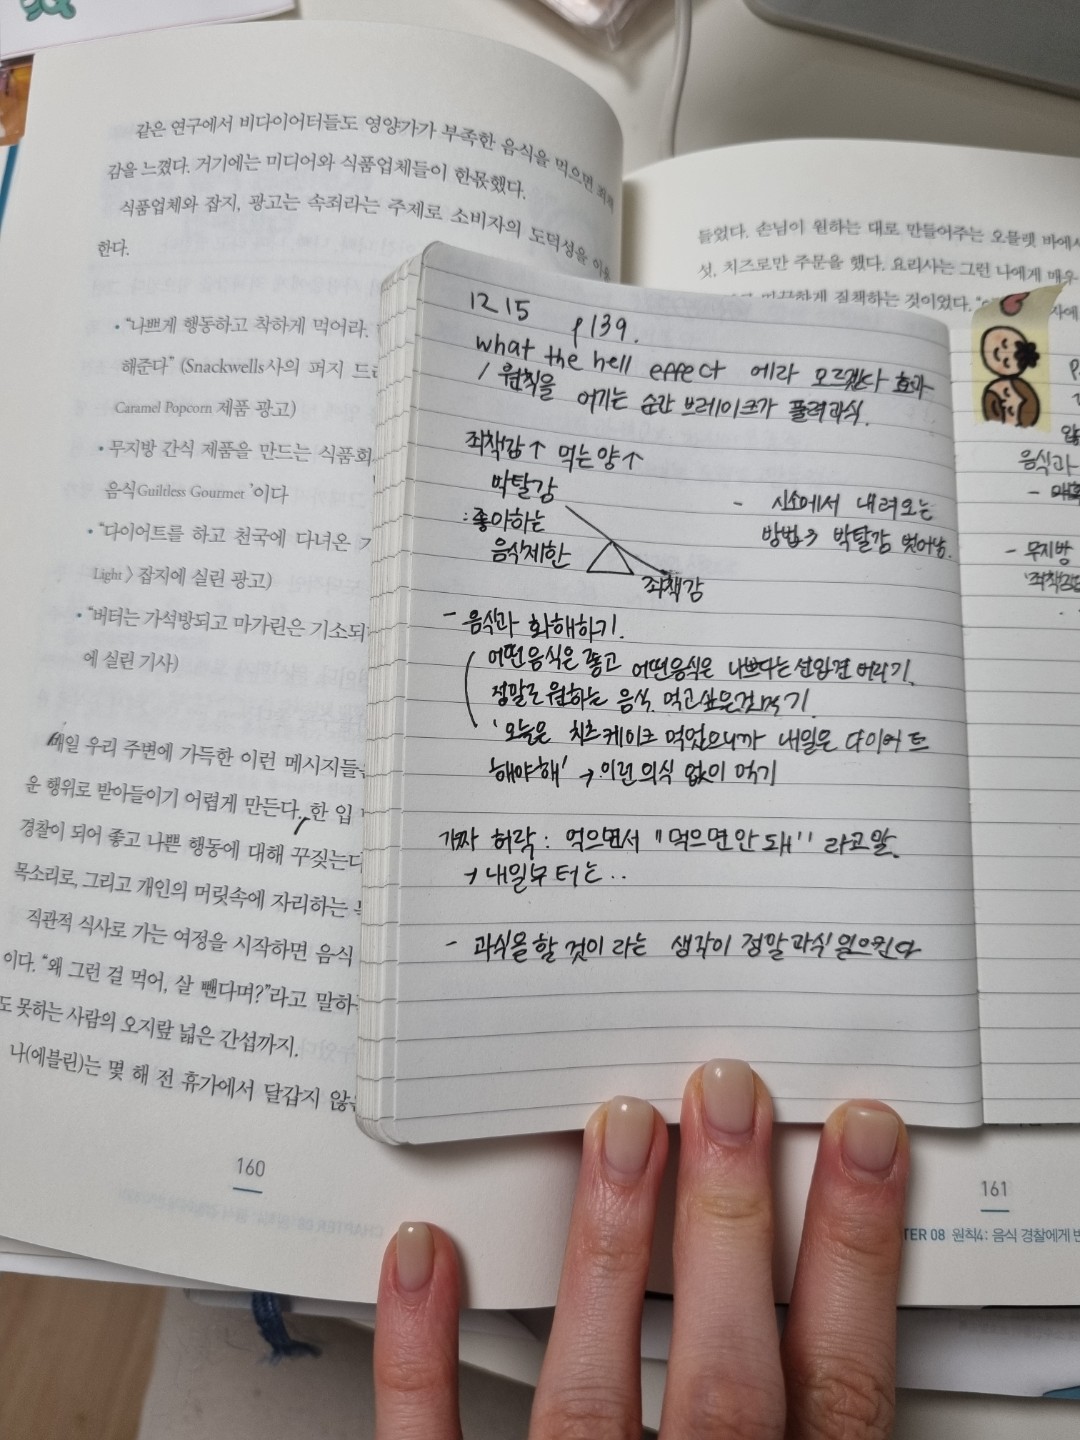 같은 연구에서 비다이어터들도 영양가가 부족한 음식을 먹으면 죄책
감을 느꼈다. 거기에는 미디어와 식품업체들이 한몫했다.
식품업체와 잡지, 광고는 속죄라는 주제로 소비자의 도덕성을 이용
한다.
• “나쁘게 행동하고 착하게 먹어라.
해준다” (Snackwells사의 퍼지 드
Caramel Popcorn 제품 광고)
• 무지방 간식 제품을 만드는 식품회
음식Guiltless Gourmet’이다
• “다이어트를 하고 천국에 다녀온 기
Light〉 잡지에 실린 광고)
• “버터는 가석방되고 마가린은 기소되
에 실린 기사)
매일 우리 주변에 가득한 이런 메시지들
운 행위로 받아들이기 어렵게 만든다. 한 입
경찰이 되어 좋고 나쁜 행동에 대해 꾸짖는다
목소리로, 그리고 개인의 머릿속에 자리하는
직관적 식사로 가는 여정을 시작하면 음식
이다. “왜 그런 걸 먹어, 살 뺀다며?”라고 말하
도 못하는 사람의 오지랖 넓은 간섭까지.
나(에블린)는 몇 해 전 휴가에서 달갑지 않은
160
12 15 p139.
what the hell effect 에라 모르겠다 효과
/ 원칙을 어기는 순간 브레이크가 풀려과식.
죄책감↑ 먹는양↑
박탈감
:좋아하는
음식제한
죄책감
- 시소에서 내려오는
방법→ 박탈감 벗어남.
- 음식과 화해하기.
어떤음식은 좋고 어떤음식은 나쁘다는선입견 버리기.
정말로원하는 음식. 먹고싶은것먹기.
'오늘은 치즈케이크 먹었으니까 내일은 다이어트
해야해' → 이런 의식 없이 먹기
가짜 허락: 먹으면서 "먹으면안돼" 라고말.
→ 내일부터는..
- 과식을할 것이 라는 생각이 정말과식 일으킨다
들었다. 손님이 원하는 대로 만들어주는 오믈렛 바에서
섯, 치즈로만 주문을 했다. 요리사는 그런 나에게 매우
하게 질책하는 것이었다.
음식과
- 무지방
161
원칙4: 음식 경찰에게 반